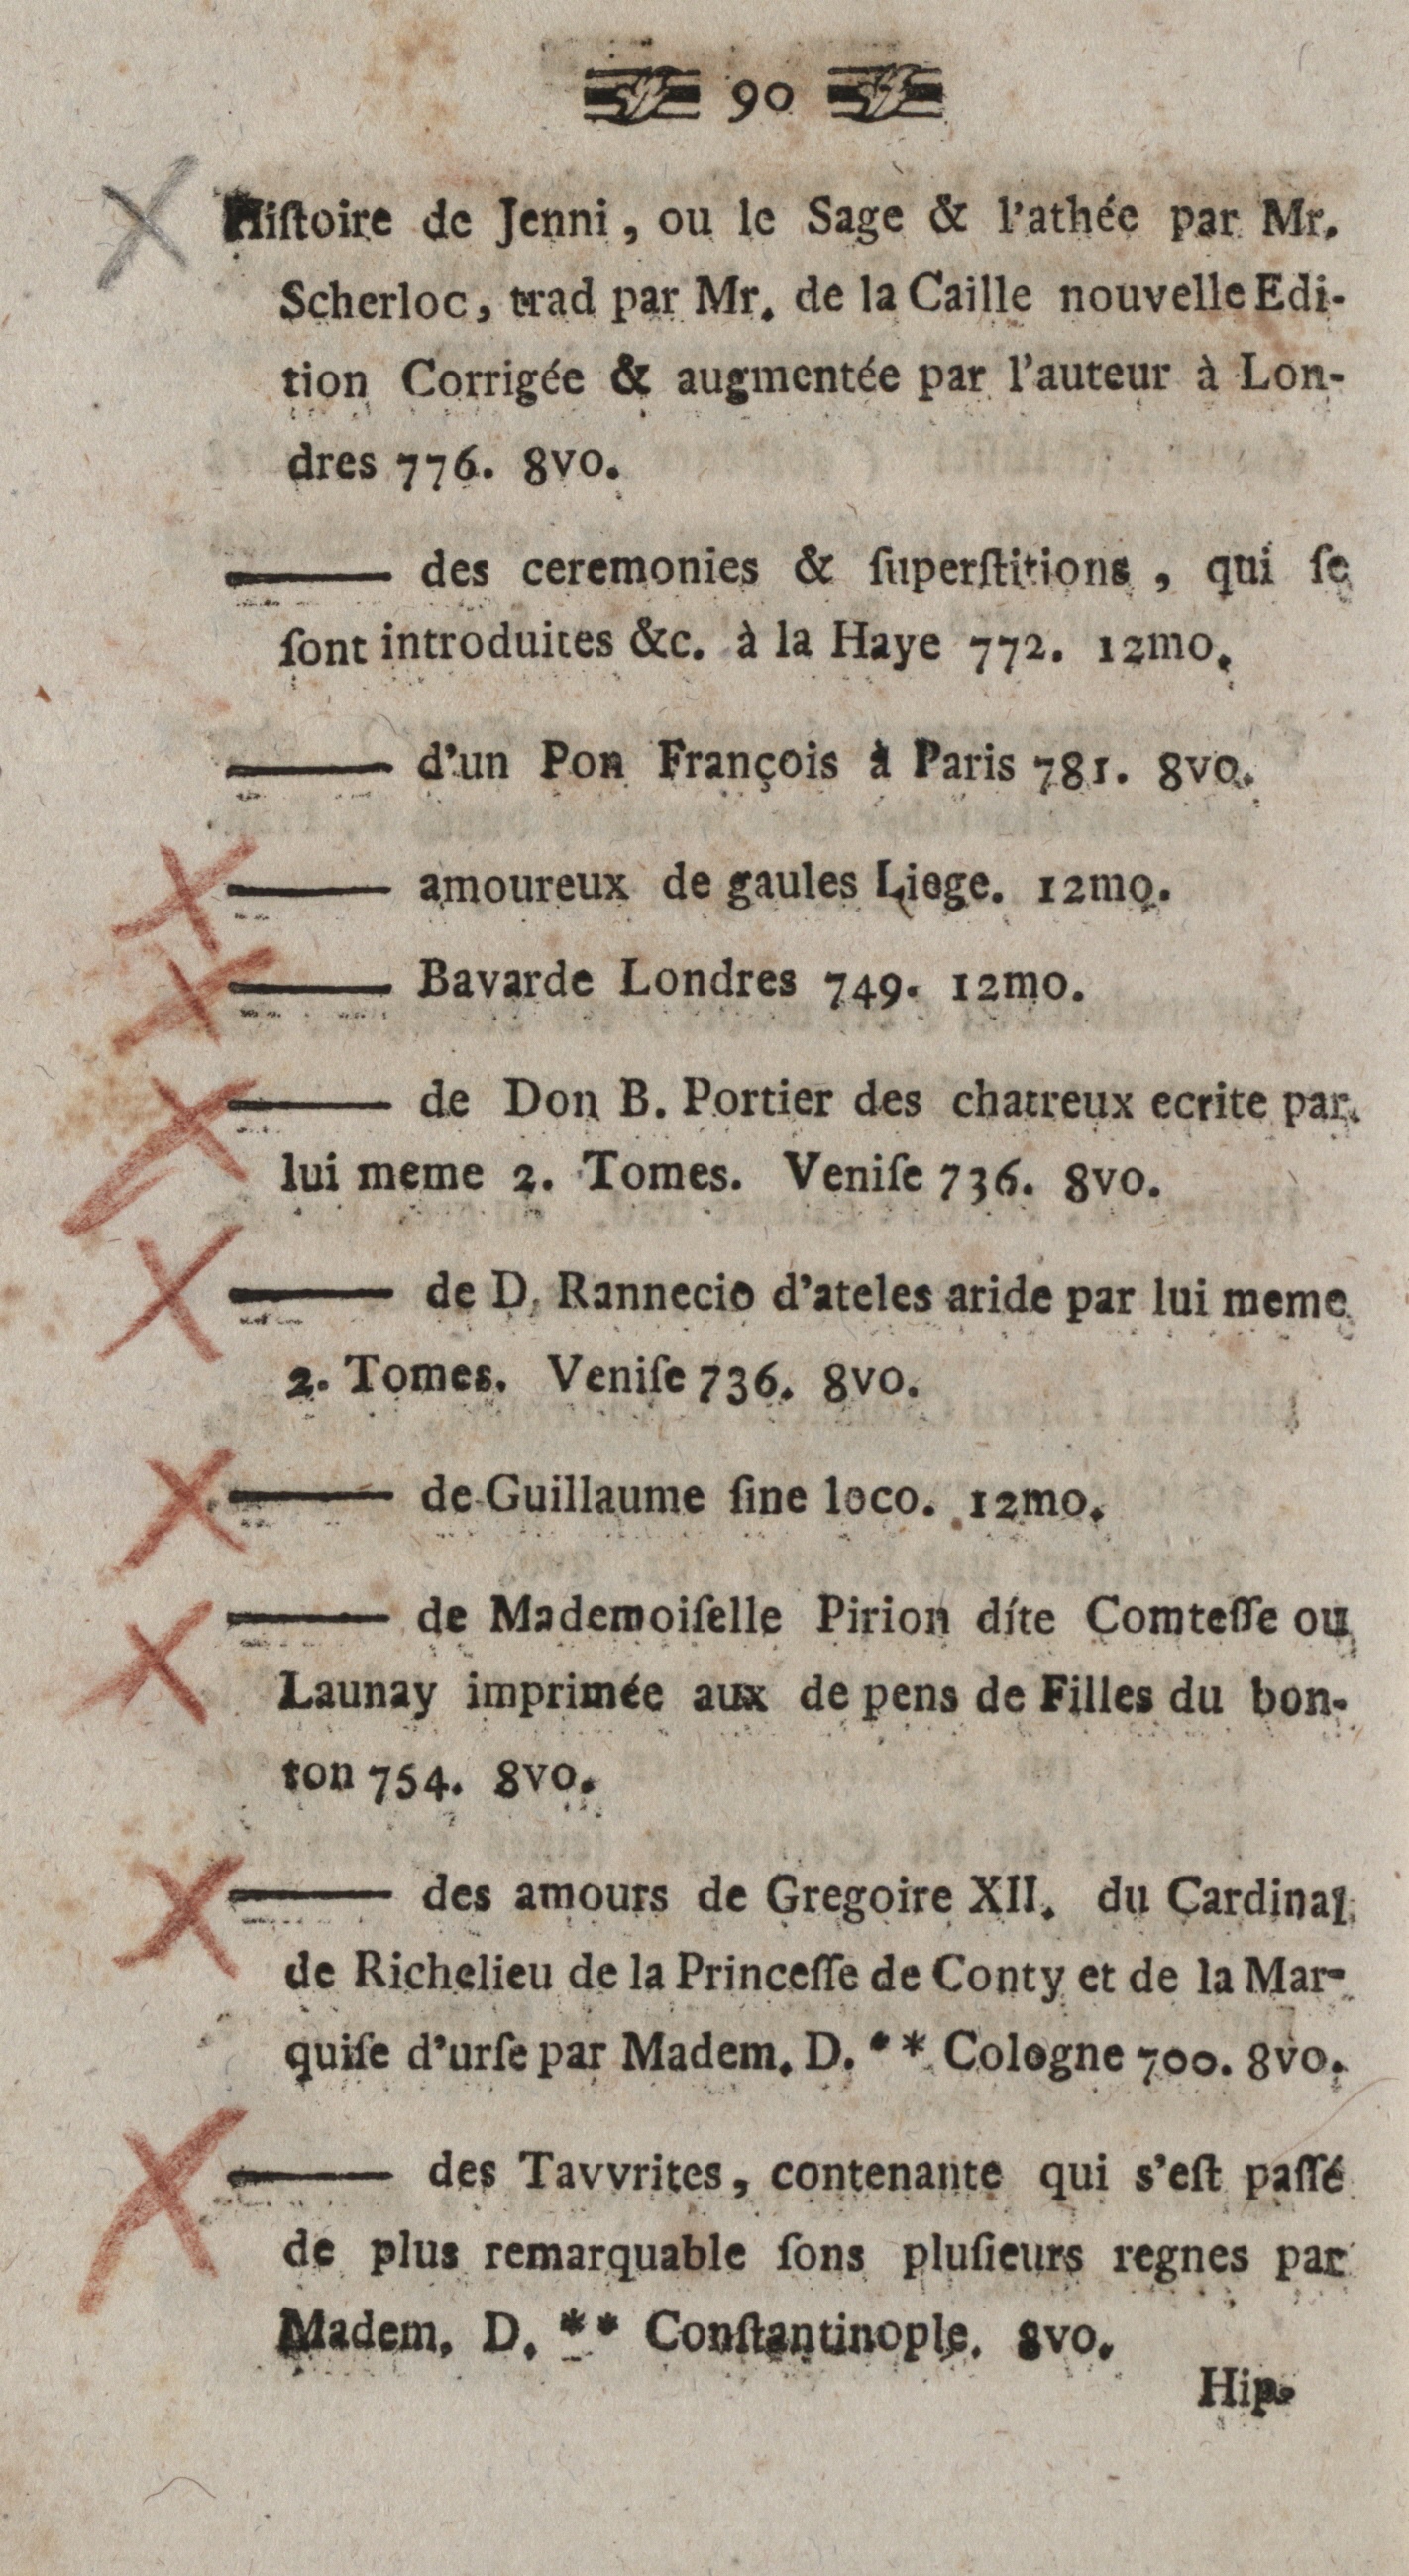 90
Hiſtoire de Jenni, ou le Sage & l'athée par Mr.
Scherloc, trad par Mr. de la Caille nouvelle Edi-
tion Corrigée & augmentée par l'auteur à Lon-
dres 776. 8vo.
——— des ceremonies & ſuperſtitions, qui ſe
ſont introduites &c. à la Haye 772. 12mo.
——— d'un Pon François à Paris 781. 8vo.
——— amoureux de gaules Liege. 12mo.
——— Bavarde Londres 749. 12mo.
——— de Don B. Portier des chatreux ecrite par
lui meme 2. Tomes. Veniſe 736. 8vo.
——— de D. Rannecio d'ateles aride par lui meme
2. Tomes. Veniſe 736. 8vo.
——— de Guillaume ſine loco. 12mo.
——— de Mademoiſelle Pirion díte Comteſſe ou
Launay imprimée aux de pens de Filles du bon-
ton 754. 8vo.
——— des amours de Gregoire XII. du Cardinal
de Richelieu de la Princeſſe de Conty et de la Mar-
quiſe d'urſe par Madem. D. ** Cologne 700. 8vo.
——— des Tavvrites, contenante qui s'eſt paſſé
de plus remarquable ſons pluſieurs regnes par
Madem. D. ** Conſtantinople. 8vo.
Hip-